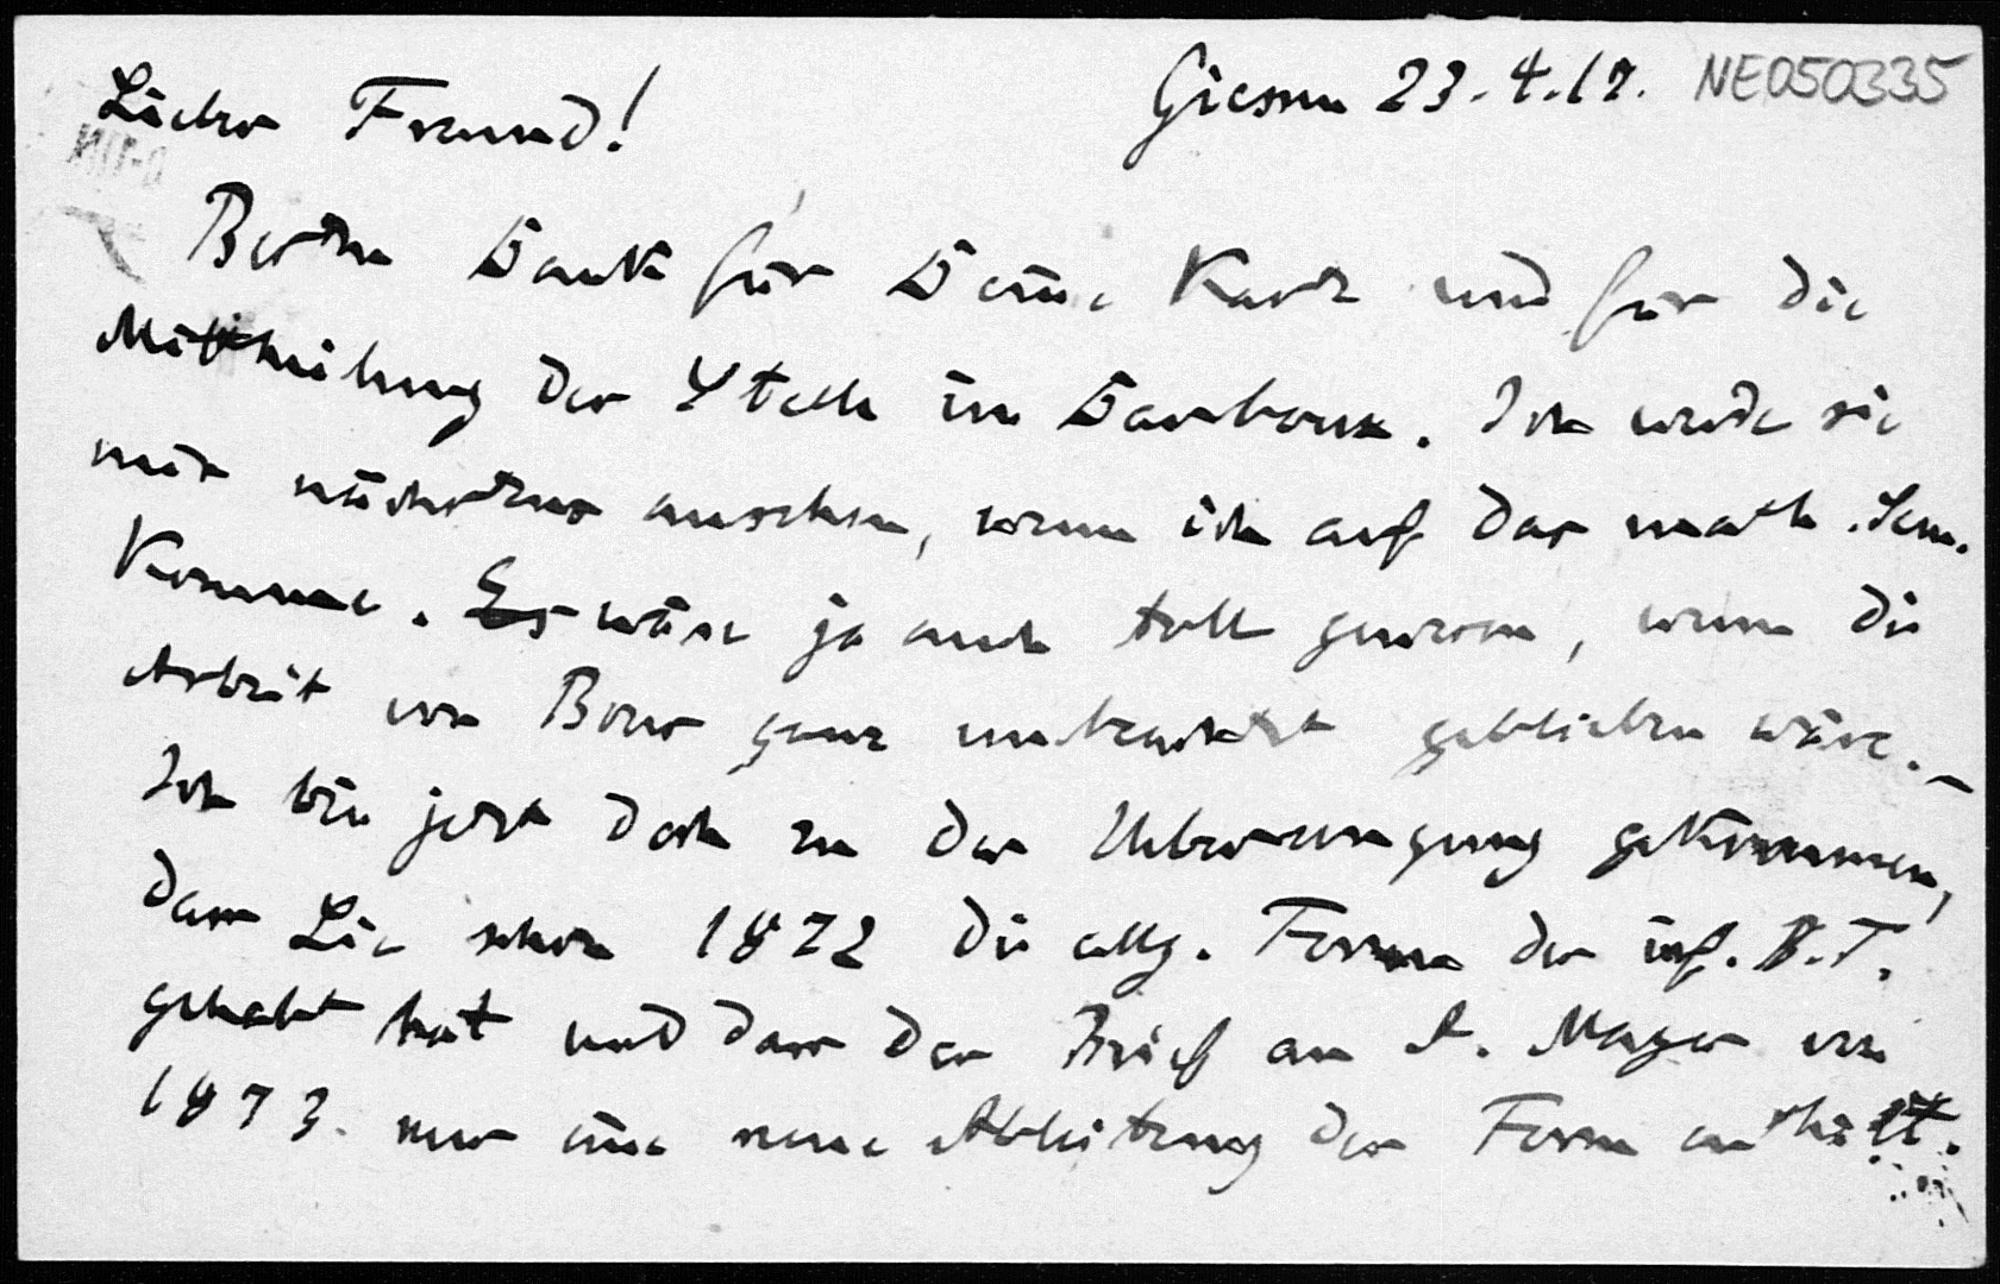 Giessen 23.4.17. NE050335
Lieber Freund!
Besten Dank für Deine Karte und für die
Mittheilung der Stelle im Darboux. Ich werde sie
mir nächstens ansehen, wenn ich auf das math. Sem.
komme. Es wäre ja auch toll gewesen, wenn die
Arbeit von Bour ganz unbeachtet geblieben wäre. –
Ich bin jetzt doch zu der Ueberzeugung gekommen,
dass Lie schon 1872 die allg. Form der inf. B.T.
gehabt hat und dass der Brief an A. Mayer von
1873 nur eine neue Ableitung der Form enthält.